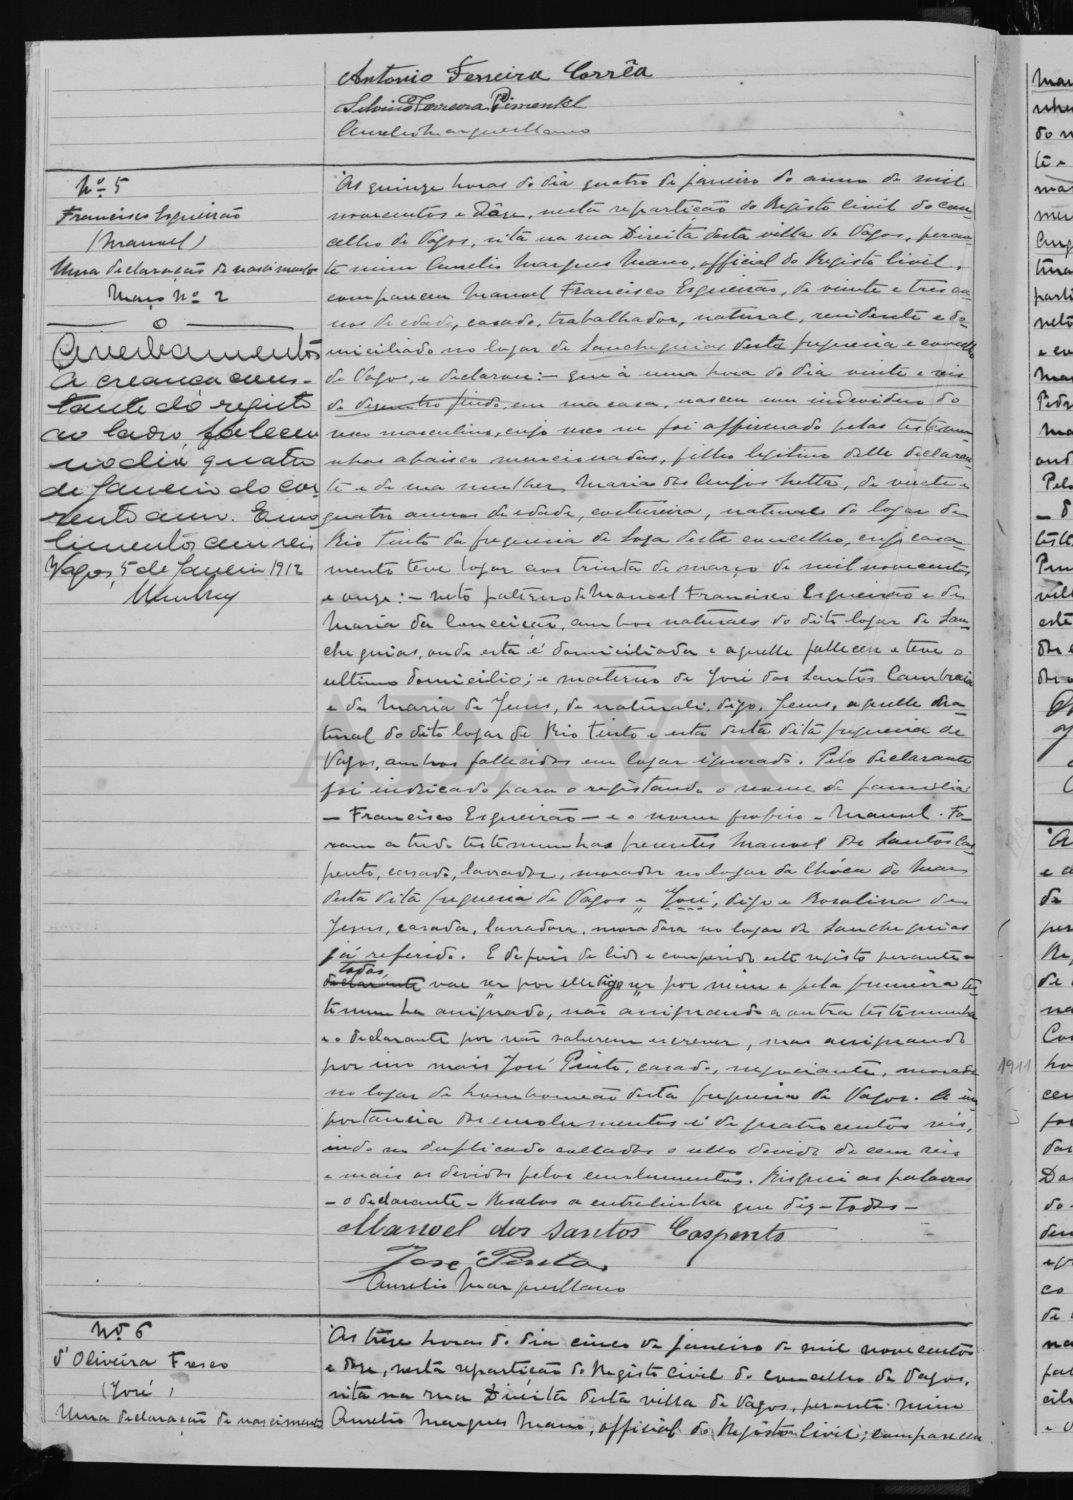 Antonio Ferreira Corrêa
Silvino Ferreira Pimentel
Aurelio Marques Mano
Nº 5
Francisco Esgueirão
(Manuel)
Uma declaração de nascimento
Maço Nº 2
Averbamentos
A creança cons-
tante do registo
ao lado, faleceu
no dia quatro
de Janeiro do cor-
rente anno. Emo-
limentos cem reis
Vagos, 5 de Janeiro 1912
As quinze horas do dia quatro de janeiro do anno de mil
novecentos e dôze, nesta repartição do Registo Civil do con-
celho de Vagos, sita na rua Direita desta villa de Vagos, peran-
te mim Aurelio Marques Mano, official do Registo Civil,
compareceu Manuel Francisco Esgueirão, de vinte e tres an-
nos de edade, casado, trabalhador, natural, residente e do-
miciliado no logar de Sanchequias desta freguezia e concelho
de Vagos, e declarou: - que à uma hora do dia vinte e seis
de dezembro findo, em sua casa, nasceu um individuo do
sexo masculino, cujo sexo me foi affirmado pelas testemu-
nhas abaixo mencionadas, filho legitimo delle declaran-
te e de sua mulher Maria dos Anjos Netta, de vinte e
quatro annos de edade, costureira, natural do logar de
Rio Tinto da freguezia de Soza deste concelho, cujo casa-
mento teve logar aos trinta de março de mil novecentos
e onze: - neto paterno de Manoel Francisco Esgueirão e de
Maria da Conceição, ambos naturaes do dito logar de San-
chequias, onde esta é domiciliada e aquelle falleceu e teve o
ultimo domicilio; e materno de José dos Santos Cambraia
e de Maria de Jesus, de naturali, digo, Jesus, aquelle na-
tural do dito logar de Rio Tinto e esta desta dita freguezia de
Vagos, ambos fallecidos em logar ignorado. Pelo declarante
foi indicado para o registando o nome de familia
- Francisco Esgueirão - e o nome proprio - Manuel. Fo-
ram a tudo testemunhas presentes Manoel dos Santos Cas-
pento, casado, lavrador, morador no logar da Chóca do Mar
desta dita freguezia de Vagos e José, digo e Rosalina de
Jesus, casada, lavradora, moradora no logar de Sanchequias
já referido. E depois de lido e conferido este registo perante o
todos
declarante vae ser por elle digo ser por mim e pela primeira tes-
temunha assignado, não assignando a outra testemunha
e o declarante por não saberem escrever, mas assignando
por isso mais José Pinto, casado, negociante, morador
no logar de Lombomeão desta freguezia de Vagos. A im-
portancia dos emolumentos é de quatrocentos reis,
indo no duplicado collados o sello devido de cem reis
e mais os devidos pelos emolumentos. Risquei as palavras
- o declarante - Resalvo a entrelinha que diz - todos -
Manoel dos Santos Caspento
José Pinto
Aurelio Marques Mano
Nº 6
d'Oliveira Fresco
(José)
Uma declaração de nascimento
As trêze horas do dia cinco de janeiro de mil novecentos
e doze, nesta repartição do Registo Civil do concelho de Vagos,
sita na rua Direita desta villa de Vagos, perante mim
Aurelio Marques Mano, official do Registo Civil, compareceu
1911
ADAVR